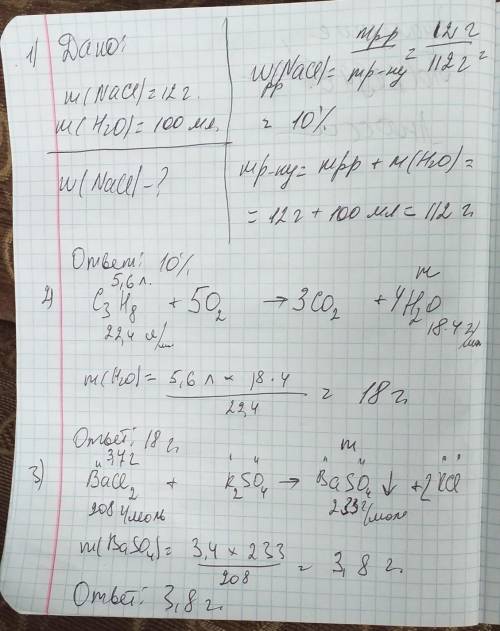 1) Дано:
m(NaCl)=12 г.
m(H2O)=100 мл.
W(NaCl)-?
W(NaCl)= mpp / mp-ну = 12 г / 112 г =
pp
= 10%
mp-ну= mpp + m(H2O)=
= 12 г + 100 мл = 112 г.
Ответ: 10%
5,6 л. m
2) C3H8 + 5O2 → 3CO2 + 4H2O
22,4 л/ 18·4 г/
m(H2O)= 5,6 л × 18·4 / 22,4 = 18 г.
Ответ: 18 г.
m
3) BaCl2 + K2SO4 → BaSO4 ↓ + 2KCl
208 г/моль 233 г/моль
m(BaSO4)= 3,4 × 233 / 208 = 3,8 г.
Ответ: 3,8 г.